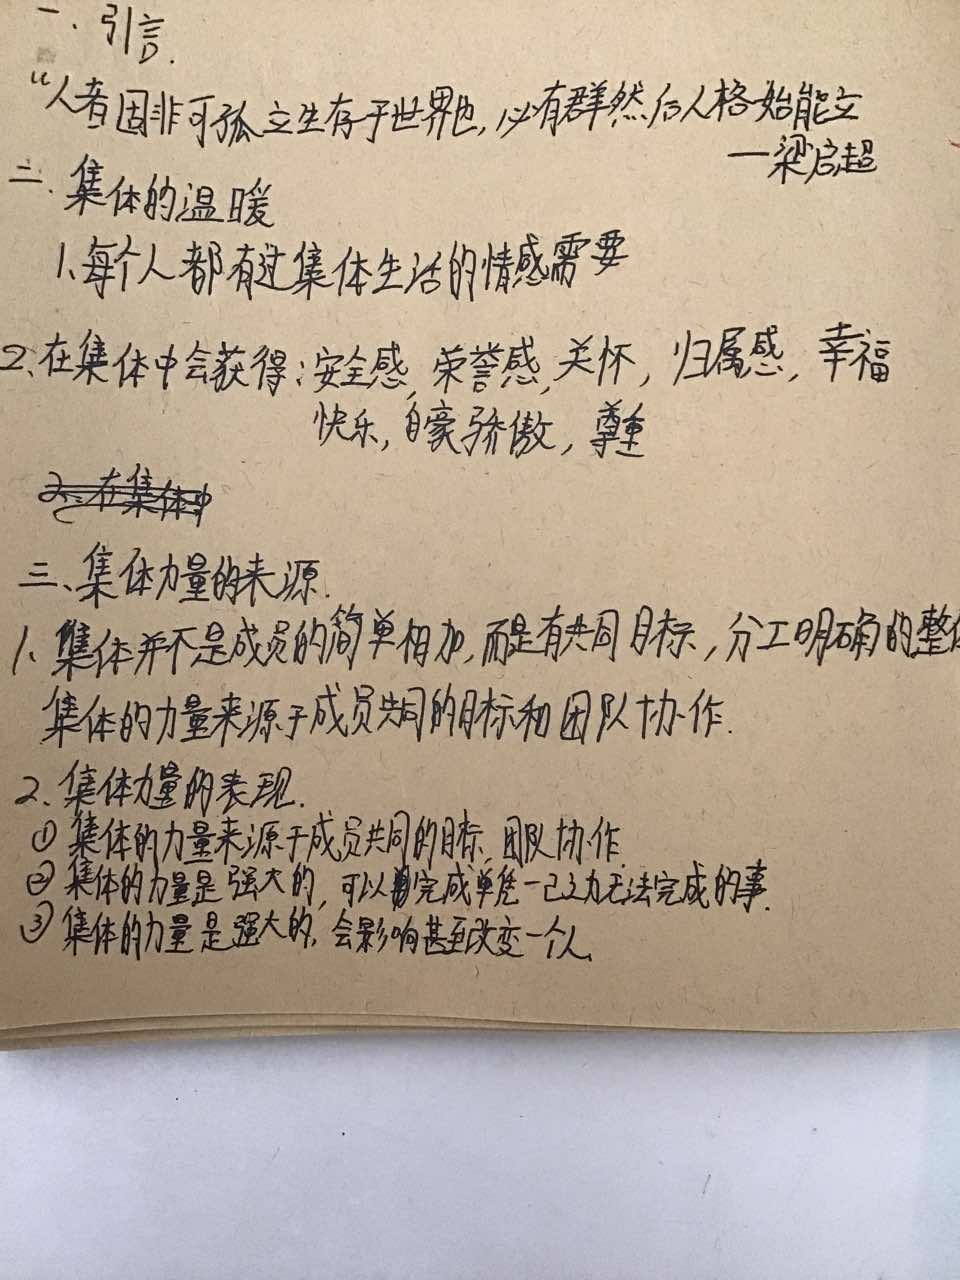 一、引言.
“人者固非可孤立生存于世界也,必有群然后人格始能立
—梁启超
二.集体的温暖
1、每个人都有过集体生活的情感需要
2、在集体中会获得:安全感,荣誉感,关怀,归属感,幸福
快乐,自豪骄傲,尊重
2.在集体中
三、集体力量的来源.
1、集体并不是成员的简单相加,而是有共同目标,分工明确的整体
集体的力量来源于成员共同的目标和团队协作.
2、集体力量的表现.
①集体的力量来源于成员共同的目标,团队协作.
②集体的力量是强大的,可以完成单凭一己之力无法完成的事.
③集体的力量是强大的,会影响甚至改变一个人.